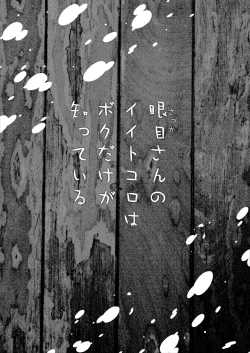 眼目さんの
イイトコロは
ボクだけが
知っている